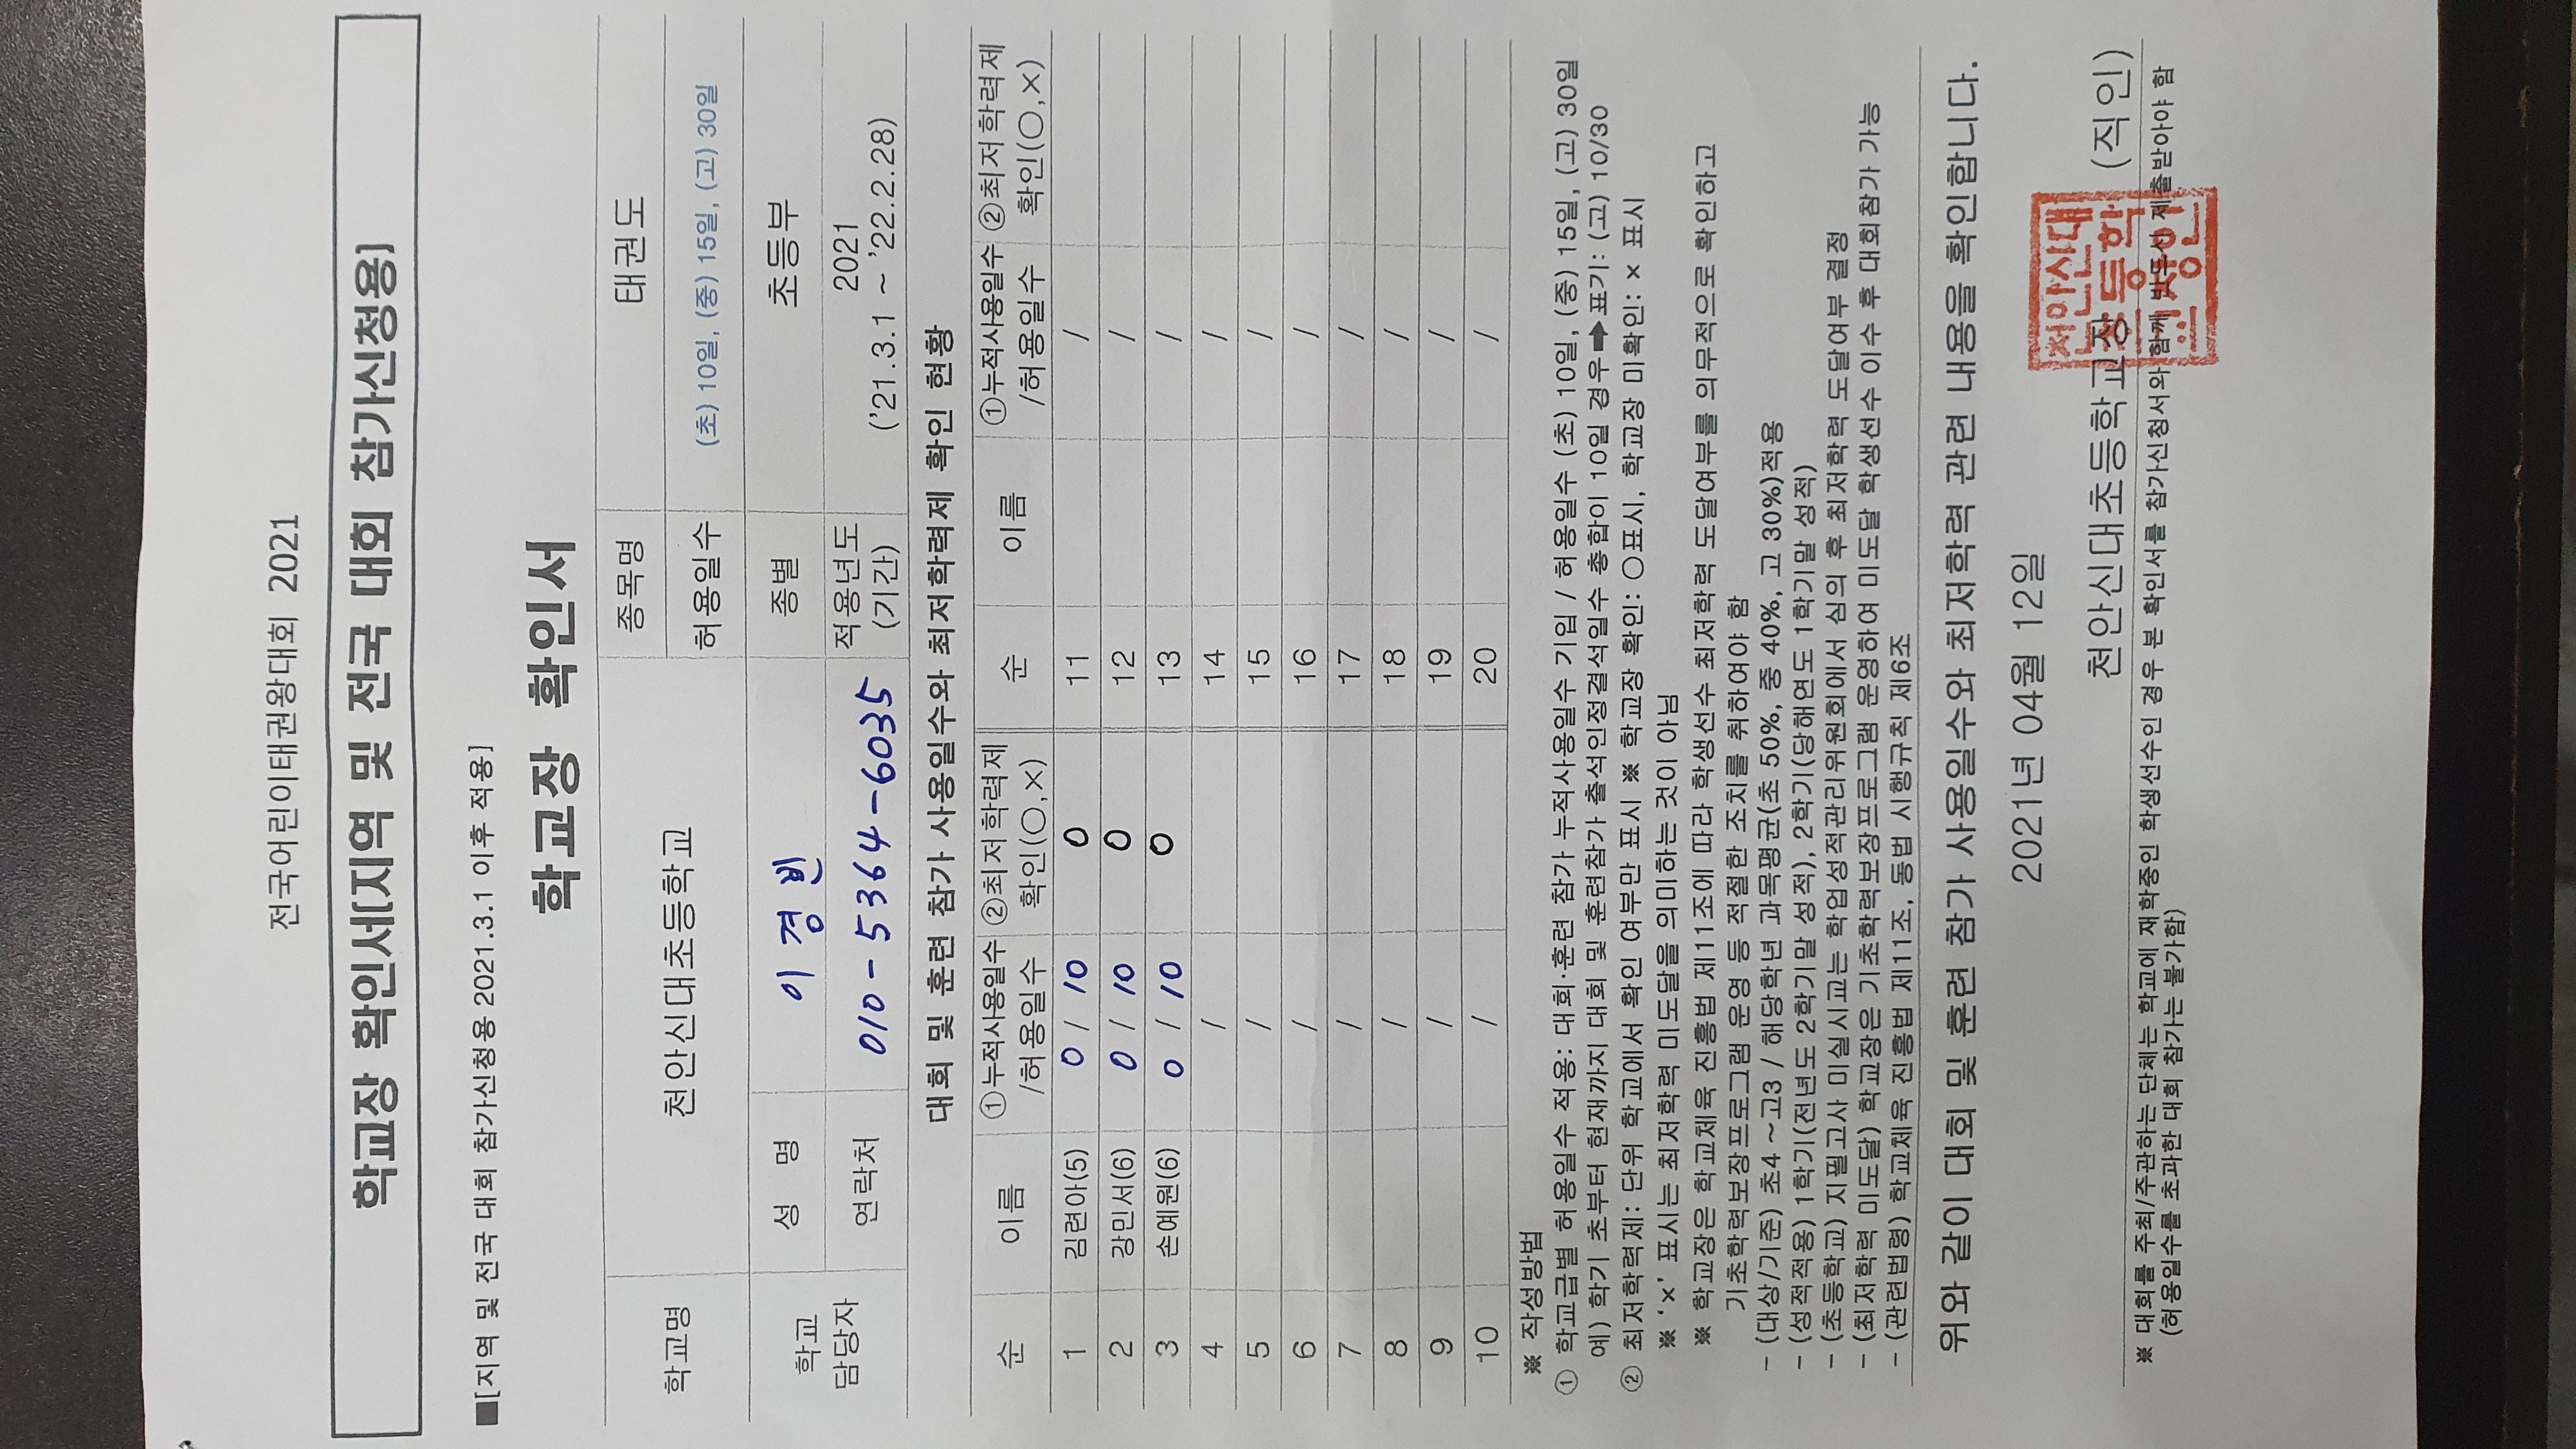 전국어린이태권왕대회 2021
학교장 확인서[지역 및 전국 대회 참가신청용]
■[지역 및 전국 대회 참가신청용 2021.3.1 이후 적용]
학교장 확인서
학교명 천안신대초등학교 종목명 태권도
허용일수 (초) 10일, (중) 15일, (고) 30일
학교 담당자 성 명 이경빈 종별 초등부
연락처 010-5364-6035 적용년도 (기간) 2021 ('21.3.1 ~ '22.2.28)
대회 및 훈련 참가 사용일수와 최저학력제 확인 현황
순 이름 ①누적사용일수 /허용일수 ②최저학력제 확인(○,×) 순 이름 ①누적사용일수 /허용일수 ②최저학력제 확인(○,×)
1 김련아(5) 0 / 10 0 11 /
2 강민서(6) 0 / 10 0 12 /
3 손예원(6) 0 / 10 0 13 /
4 / 14 /
5 / 15 /
6 / 16 /
7 / 17 /
8 / 18 /
9 / 19 /
10 / 20 /
※ 작성방법
① 학교급별 허용일수 적용: 대회·훈련 참가 누적사용일수 기입 / 허용일수 (초) 10일, (중) 15일, (고) 30일
예) 학기 초부터 현재까지 대회 및 훈련참가 출석인정결석일수 총합이 10일 경우➡표기: (고) 10/30
② 최저학력제: 단위 학교에서 확인 여부만 표시 ※ 학교장 확인: ○표시, 학교장 미확인: × 표시
※ '×' 표시는 최저학력 미도달을 의미하는 것이 아님
※ 학교장은 학교체육 진흥법 제11조에 따라 학생선수 최저학력 도달여부를 의무적으로 확인하고
기초학력보장프로그램 운영 등 적절한 조치를 취하여야 함
- (대상/기준) 초4 ~고3 / 해당학년 과목평균(초 50%, 중 40%, 고 30%)적용
- (성적적용) 1학기(전년도 2학기말 성적), 2학기(당해연도 1학기말 성적)
- (초등학교) 지필고사 미실시교는 학업성적관리위원회에서 심의 후 최저학력 도달여부 결정
- (최저학력 미도달) 학교장은 기초학력보장프로그램 운영하여 미도달 학생선수 이수 후 대회참가 가능
- (관련법령) 학교체육 진흥법 제11조, 동법 시행규칙 제6조
위와 같이 대회 및 훈련 참가 사용일수와 최저학력 관련 내용을 확인합니다.
2021년 04월 12일
천안신대초등학교장 (직인)
천안신대
초등학교
장의인
※ 대회를 주최/주관하는 단체는 학교에 재학중인 학생선수인 경우 본 확인서를 참가신청서와 함께 반드시 제출받아야 함
(허용일수를 초과한 대회 참가는 불가함)